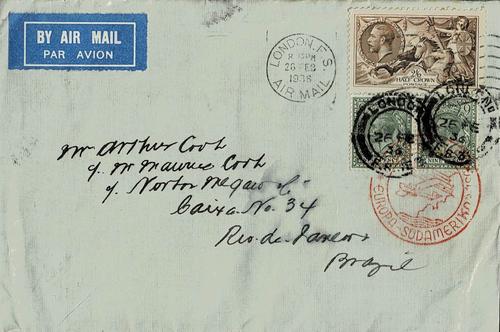 BY AIR MAIL
PAR AVION
LONDON. F.S.
26 FEB
1936
AIR MAIL
2/6
HALF CROWN
LONDON
26 FE
36
Mr Arthur Cook
c/. Mr Maurice Cook
c/. Norton Megaw & Co
Caixa. No. 34
Rio de Janeiro
Brazil
EUROPA-SÜDAMERIKA